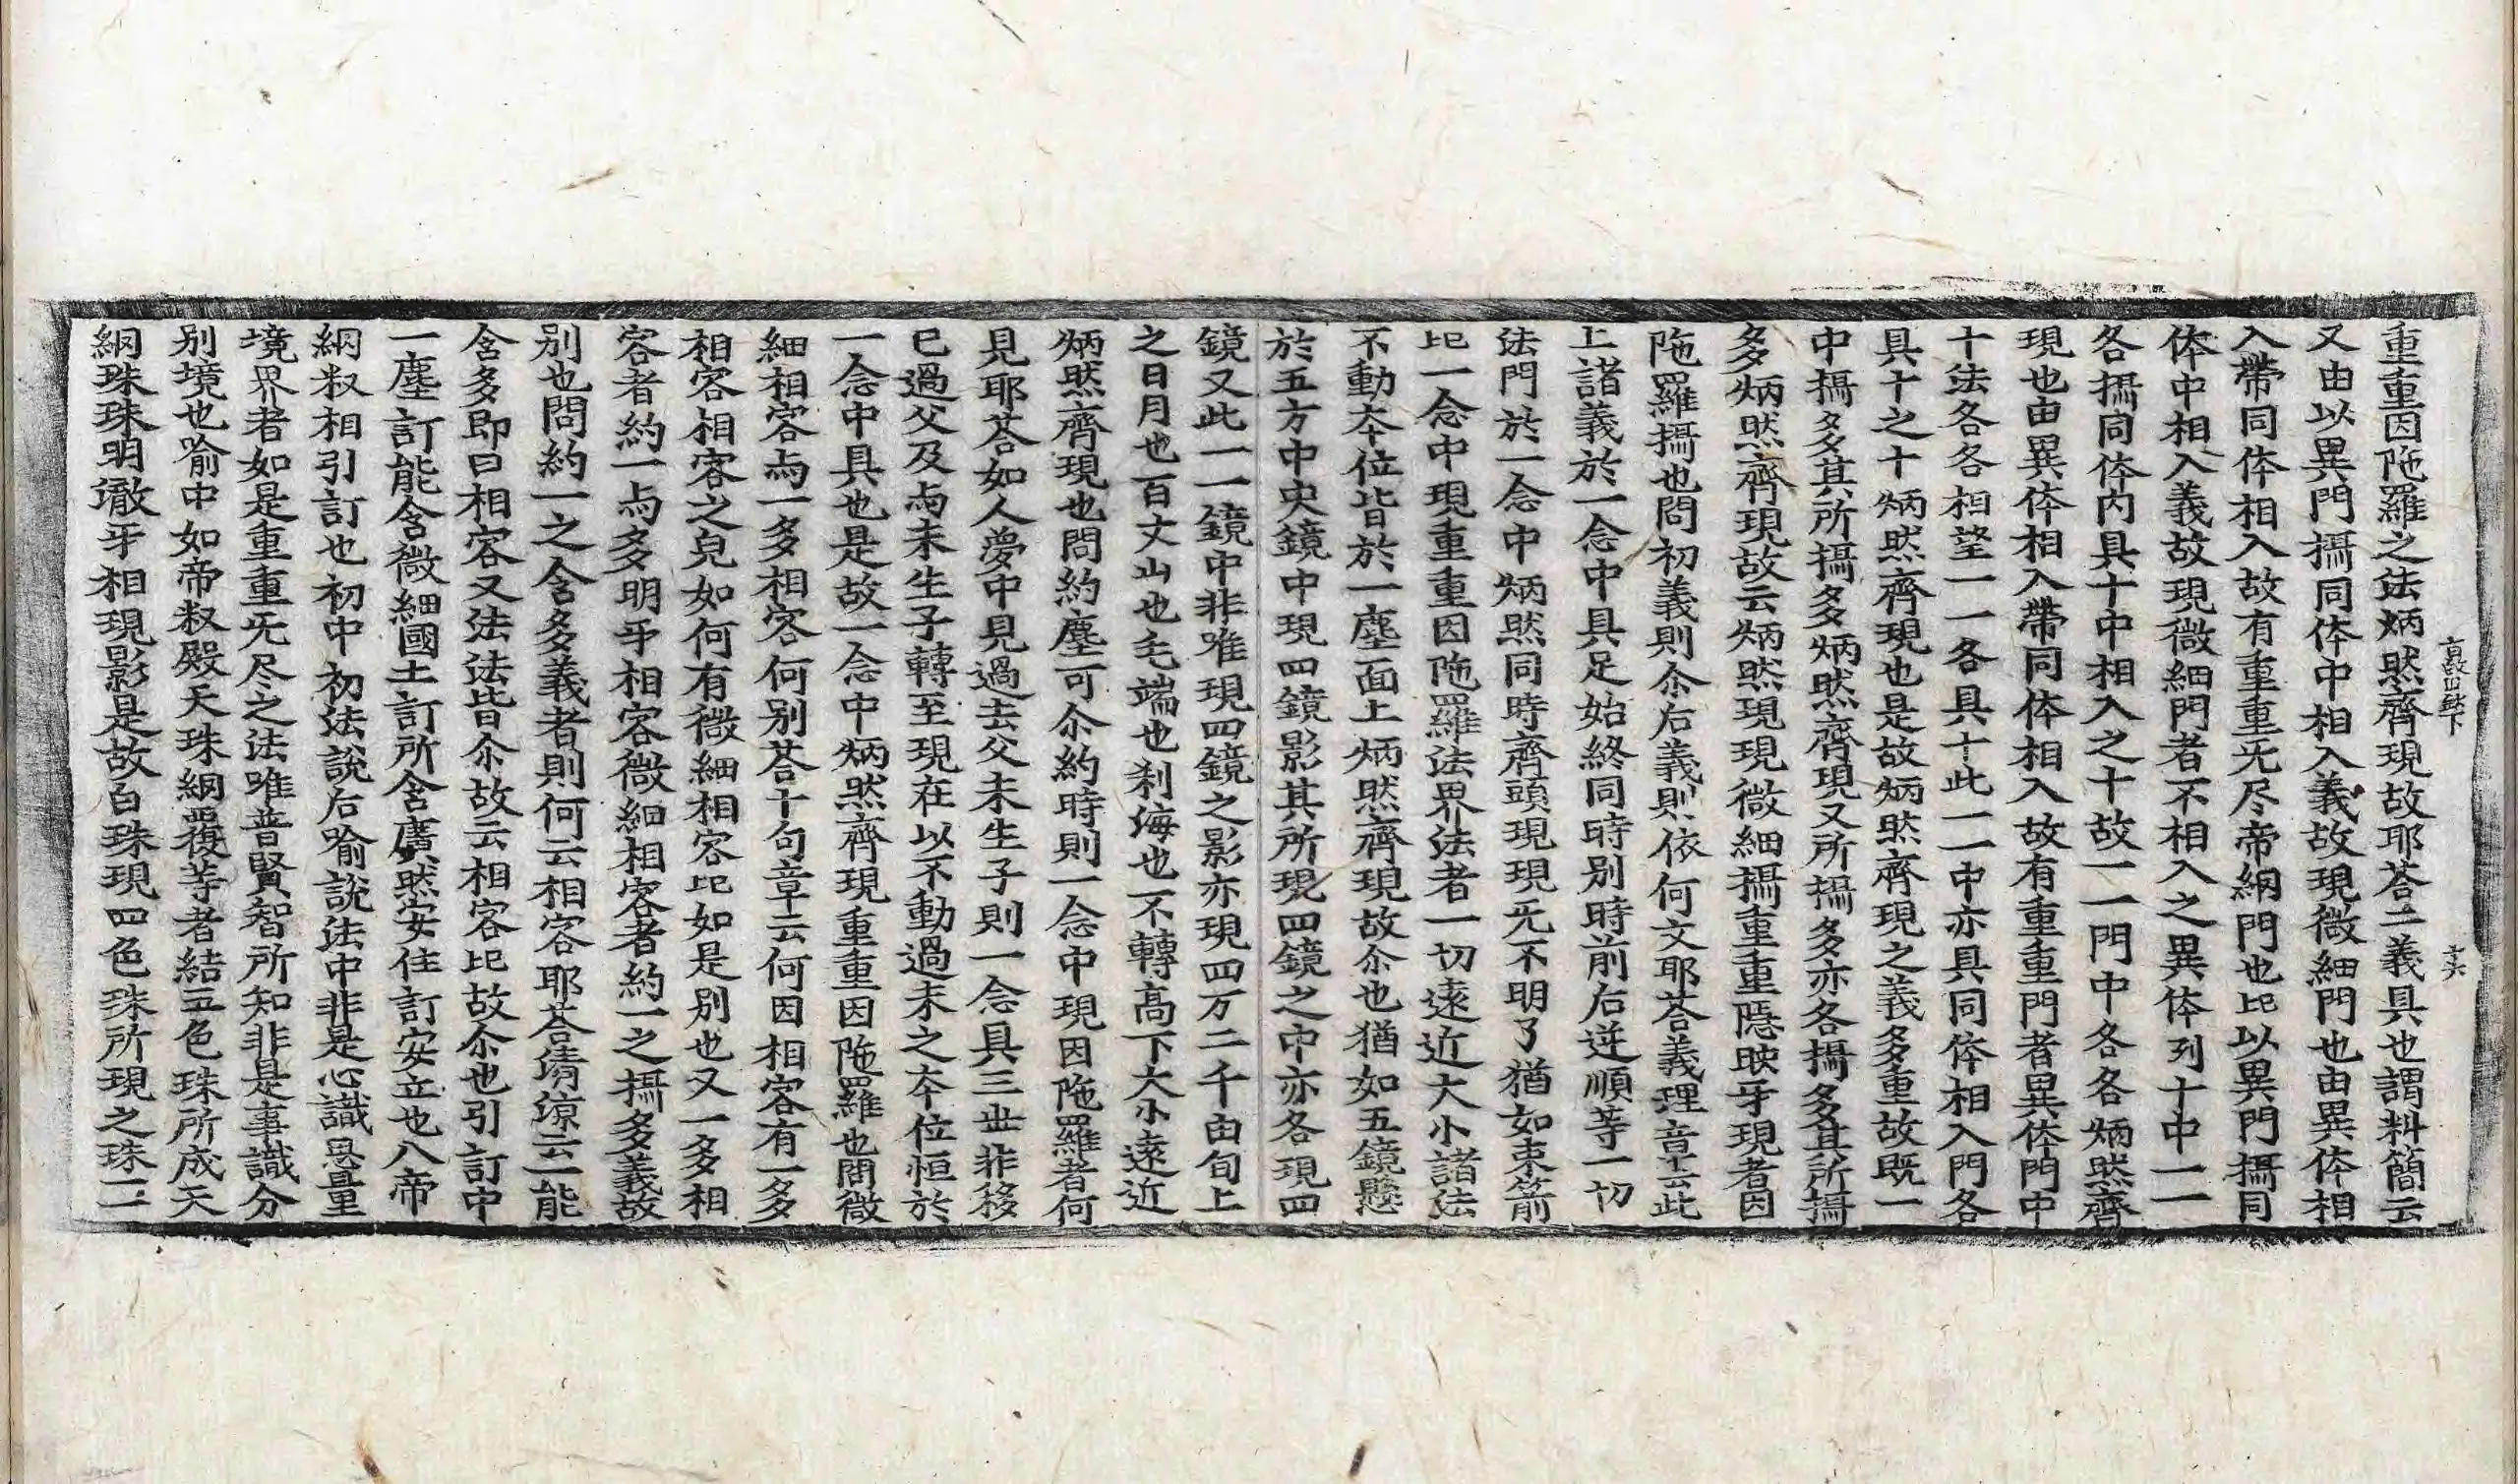 重重因陁羅之法炳然齊現故耶荅二義具也謂料簡云
又由以異門攝同体中相入義故現微細門也由異体相
入帶同体相入故有重重无尽帝網門也比以異門攝同
体中相入義故現微細門者不相入之異体列十中一一
各攝同体內具十中相入之十故一一門中各各炳然齊
現也由異体相入帶同体相入故有重重門者異体門中
十法各各相望一一各具十此一一中亦具同体相入門各
具十之十炳然齊現也是故炳然齊現之義多重故既一
中攝多其所攝多炳然齊現又所攝多亦各攝多其所攝
多炳然齊現故云炳然現現微細攝重重隱映乎現者因
陁羅攝也問初義則尒后義則依何文耶荅義理章云此
上諸義於一念中具足始終同時別時前后逆順等一切
法門於一念中炳然同時齊頭現現无不明了猶如束箭
比一念中現重重因陁羅法界法者一切遠近大小諸法
不動夲位皆於一塵面上炳然齊現故尒也猶如五鏡懸
於五方中央鏡中現四鏡影其所現四鏡之中亦各現四
鏡又此一一鏡中非唯現四鏡之影亦現四万二千由旬上
之日月也百丈山也毛端也刹海也不轉高下大小遠近
炳然齊現也問約塵可尒約時則一念中現因陁羅者何
見耶荅如人夢中見過去父未生子則一念具三世非移
已過父及与未生子轉至現在以不動過未之夲位恒於
一念中具也是故一念中炳然齊現重重因陁羅也問微
細相容与一多相容何別荅十句章云何因相容有一多
相容相容之皃如何有微細相容比如是別也又一多相
容者約一与多明乎相容微細相容者約一之攝多義故
別也問約一之含多義者則何云相容耶荅淸涼云一能
含多即曰相容又法法皆尒故云相容比故尒也引訂中
一塵訂能含微細國土訂所含廣然安住訂安立也八帝
網㕛相引訂也初中初法說后喻說法中非是心識思量
境界者如是重重无尽之法唯普賢智所知非是事識分
別境也喻中如帝㕛殿天珠網覆等者結五色珠所成天
網珠珠明徹乎相現影是故白珠現四色珠所現之珠一一